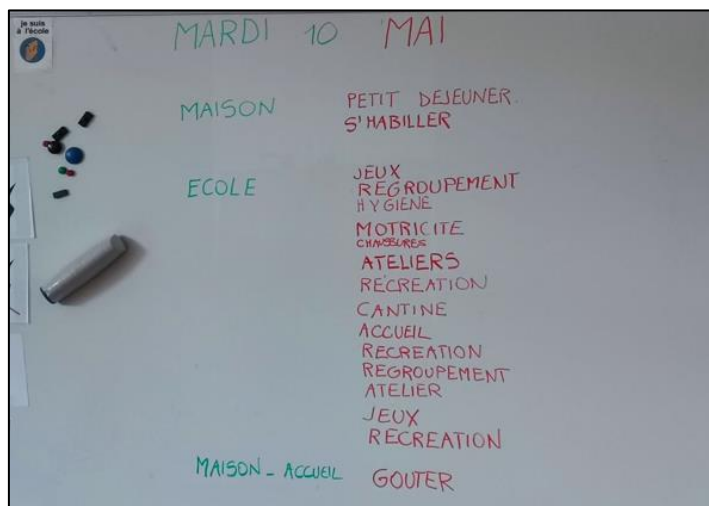 je suis
à l'école
MARDI 10 MAI
MAISON PETIT DEJEUNER.
S'HABILLER
ECOLE JEUX
REGROUPEMENT
HYGIENE
MOTRICITE
CHAUSSURES
ATELIERS
RECREATION
CANTINE
ACCUEIL
RECREATION
REGROUPEMENT
ATELIER
JEUX
RECREATION
MAISON - ACCUEIL GOUTER